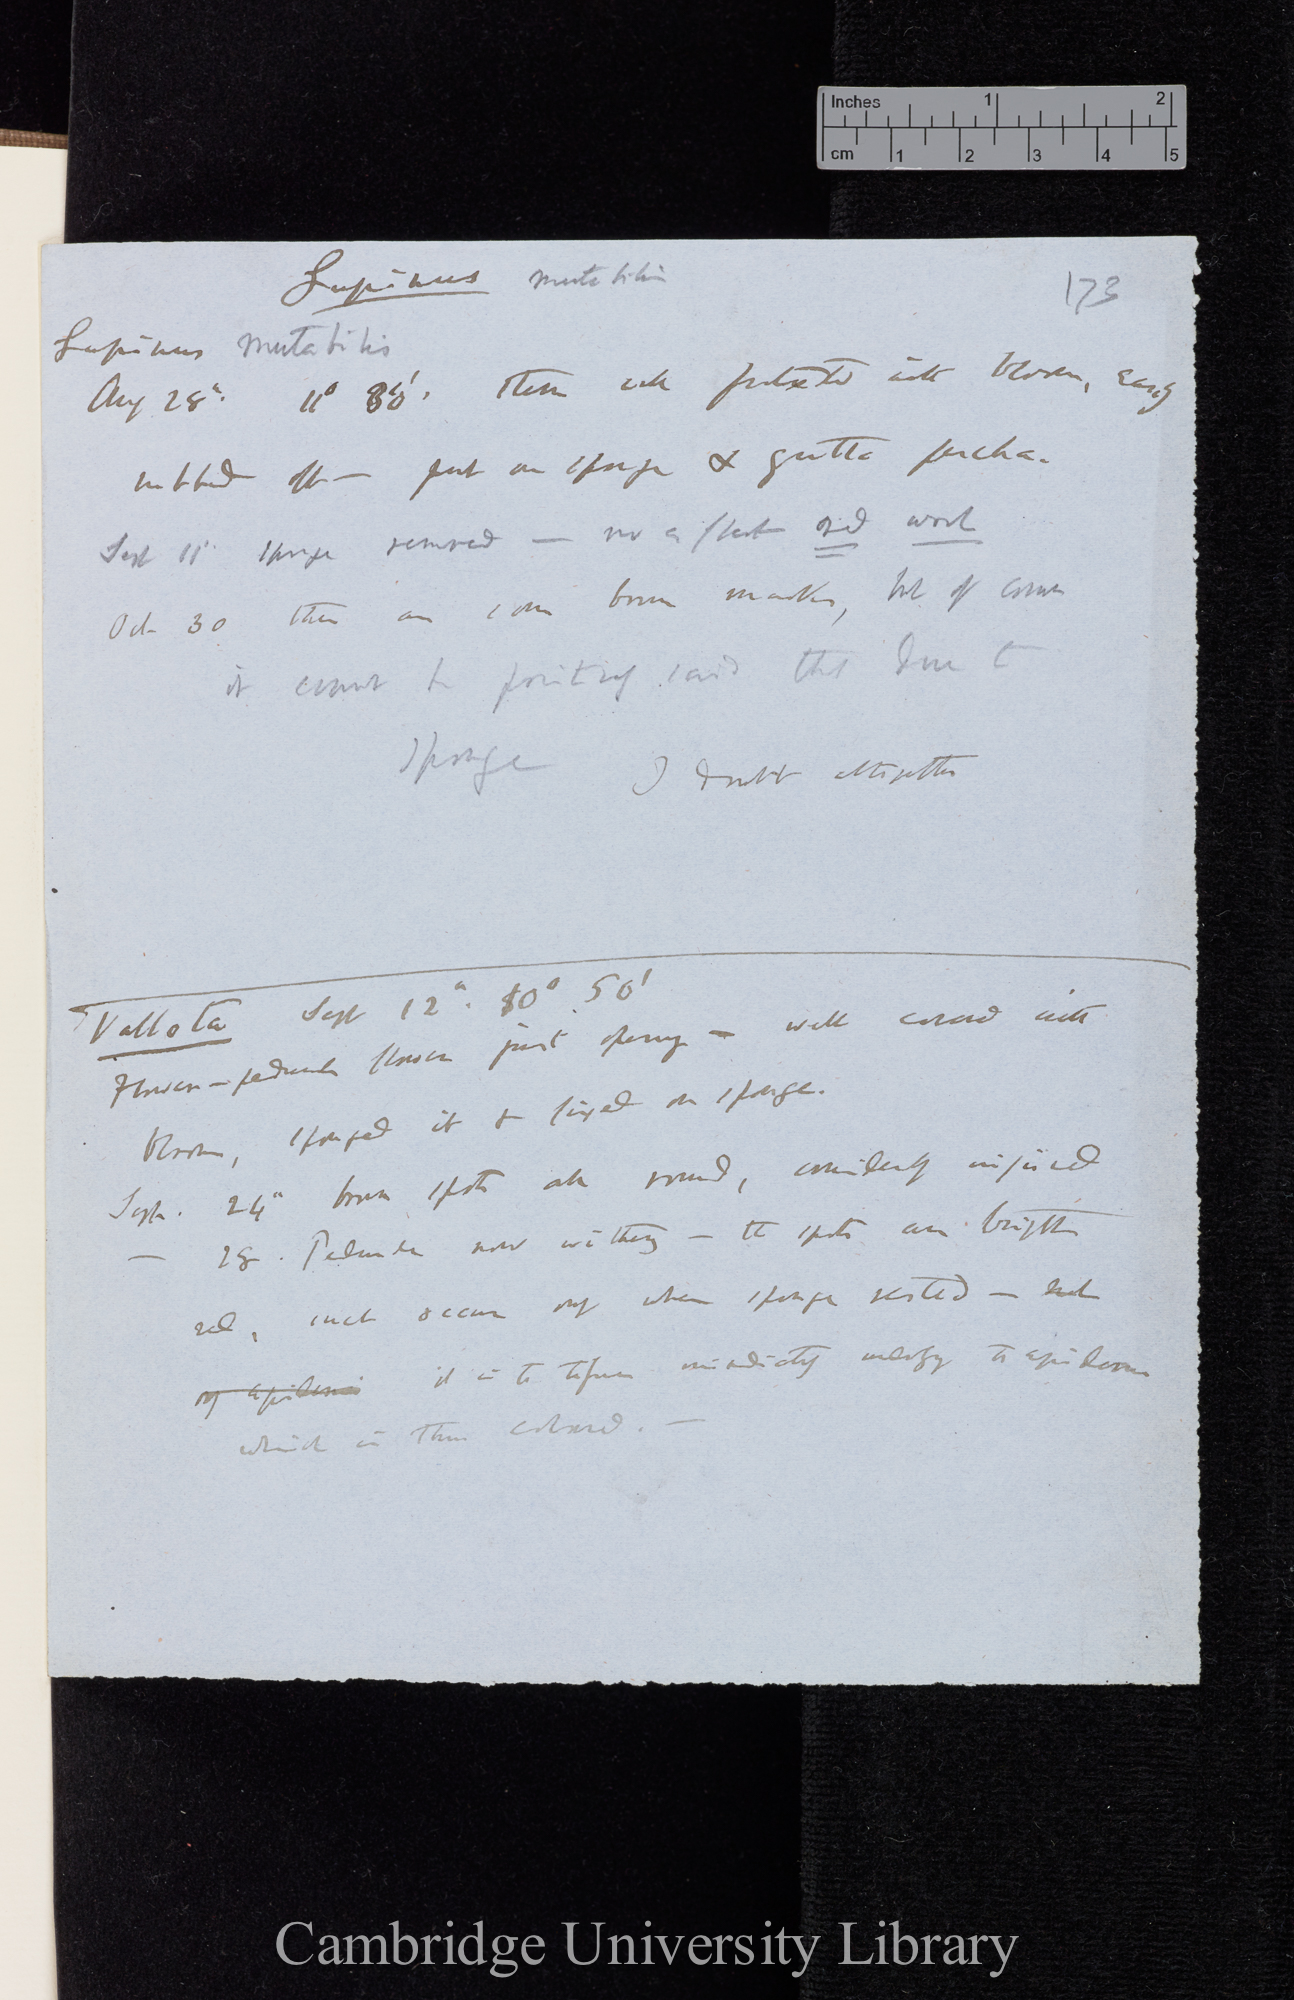 Inches 1 2
cm 1 2 3 4 5
Lupinus mutabilis
173
Lupinus mutabilis
Aug 28th. 11° Stem well protected with bloom, easily
rubbed off — put on sponge & gutta percha.
Sept 11. sponge removed — no effect old wood
Oct 30 there are some brown marks, but of course
it cannot be positively said that due to
sponge I doubt altogether
Vallota Sept 12th. 10° 50'
Flower-peduncle flowers just opening — well covered with
bloom, sponged it & fixed on sponge.
Sept. 24th brown spots all round, evidently injured
— 28. Peduncle now withering — the spots are brighter
red, such occur only where sponge rested —
only epidermis it is the tissue immediately underlying the epidermis
which is thus coloured. —
Cambridge University Library